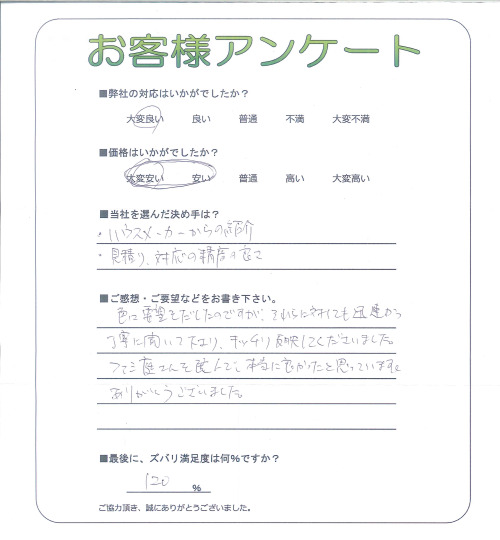 お客様アンケート
■弊社の対応はいかがでしたか？
大変良い 良い 普通 不満 大変不満
■価格はいかがでしたか？
大変安い 安い 普通 高い 大変高い
■当社を選んだ決め手は？
・ハウスメーカーからの紹介
・見積り、対応の精度
■ご感想・ご要望などをお書き下さい。
色に要望をだしたのですが、それらに対しても迅速かつ
丁寧に聞いて下さり、キッチリ反映してくださいました。
さんを選んで、本当に良かったと思っています。
ありがとうございました。
■最後に、ズバリ満足度は何％ですか？
120 ％
ご協力頂き、誠にありがとうございました。